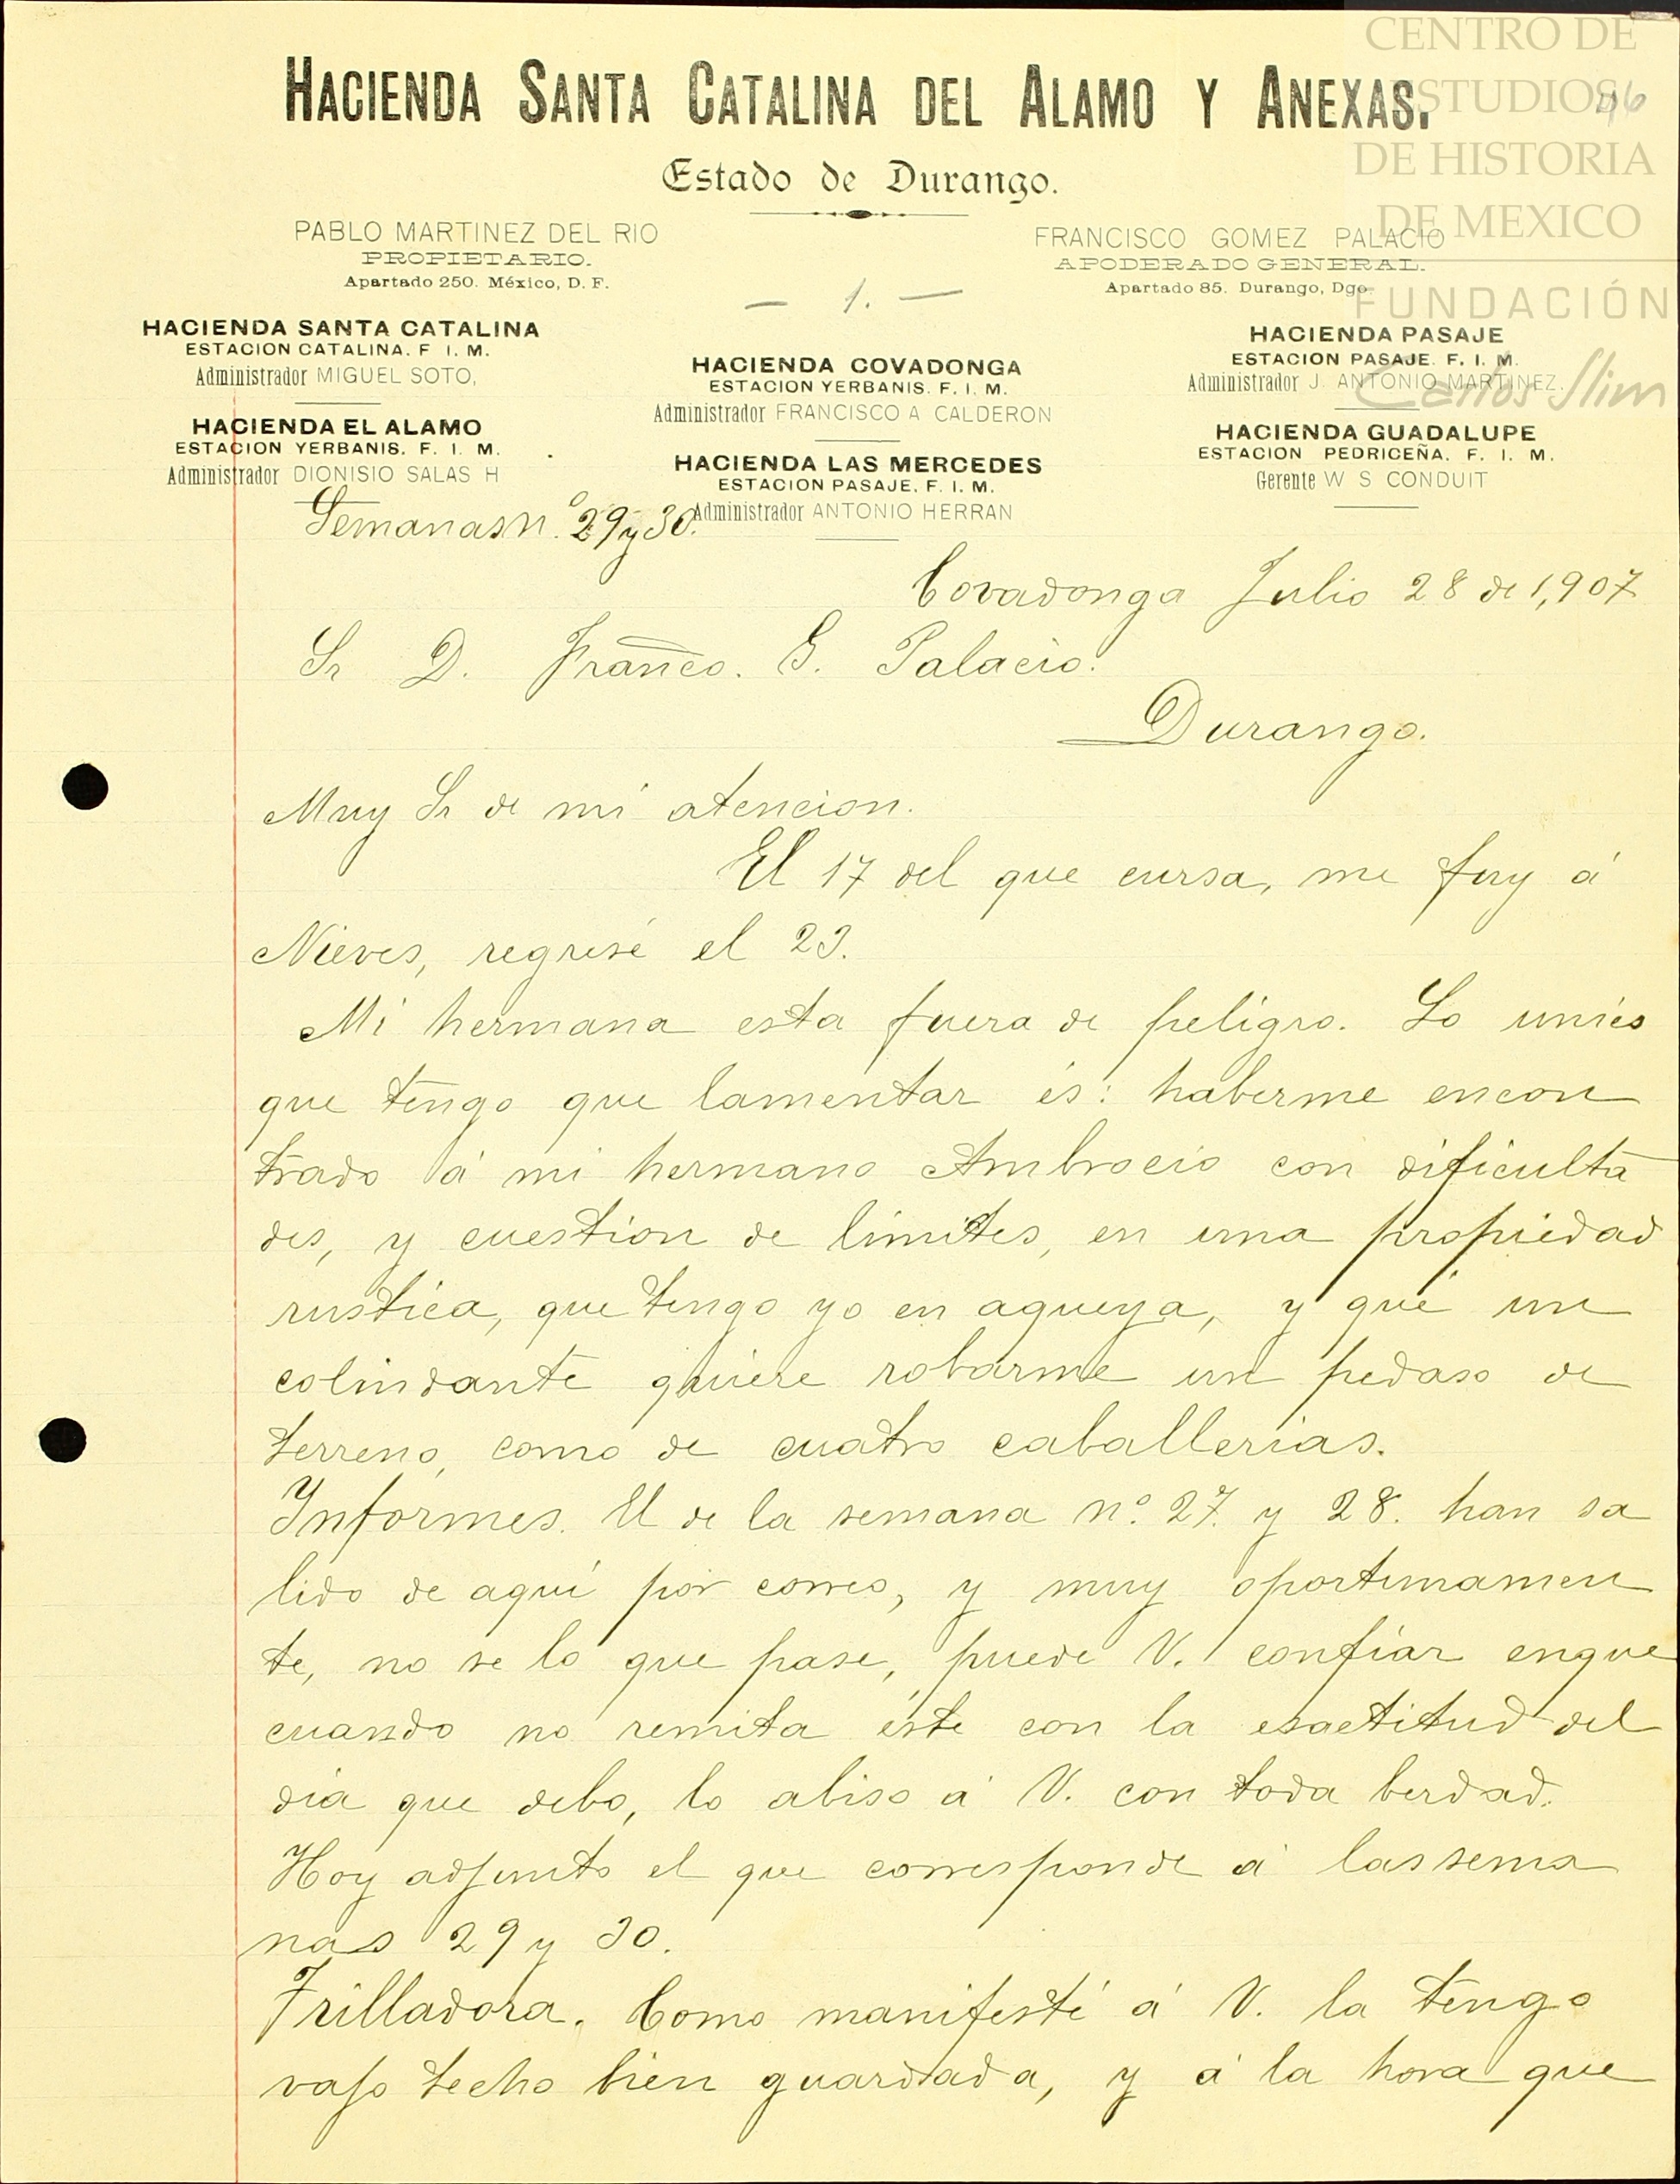 CENTRO DE
ESTUDIOS
DE HISTORIA
DE MEXICO
FUNDACIÓN
Carlos Slim
46
HACIENDA SANTA CATALINA DEL ALAMO Y ANEXAS.
Estado de Durango.
PABLO MARTINEZ DEL RIO
PROPIETARIO.
Apartado 250. México, D. F.
FRANCISCO GOMEZ PALACIO
APODERADO GENERAL.
Apartado 85. Durango, Dgo.
— 1. —
HACIENDA SANTA CATALINA
ESTACION CATALINA. F. I. M.
Administrador MIGUEL SOTO,
HACIENDA EL ALAMO
ESTACION YERBANIS. F. I. M.
Administrador DIONISIO SALAS H
HACIENDA COVADONGA
ESTACION YERBANIS. F. I. M.
Administrador FRANCISCO A CALDERON
HACIENDA LAS MERCEDES
ESTACION PASAJE. F. I. M.
Administrador ANTONIO HERRAN
HACIENDA PASAJE
ESTACION PASAJE. F. I. M.
Administrador J. ANTONIO MARTINEZ.
HACIENDA GUADALUPE
ESTACION PEDRICEÑA. F. I. M.
Gerente W S CONDUIT
Semanas n.º 29 y 30.
Covadonga Julio 28 de 1,907
Sr D. Franco. G. Palacio.
Durango.
Muy Sr de mi atencion.
El 17 del que cursa, me fuy á
Nieves, regresé el 23.
Mi hermana esta fuera de peligro. Lo unico
que tengo que lamentar és: haberme encon
trado á mi hermano Ambrocio con dificulta
des, y cuestion de limites, en una propiedad
rustica, que tengo yo en aqueya, y que un
colindante quiere robarme un pedaso de
terreno, como de cuatro caballerias.
Informes. El de la semana nº. 27. y 28. han sa
lido de aquí por correo, y muy oportunamen
te, no se lo que pase, puede V. confiar enque
cuando no remita éste con la esactitud del
dia que debo, lo abiso á V. con toda berdad.
Hoy adjunto el que corresponde á las sema
nas 29 y 30.
Trilladora. Como manifesté á V. la tengo
vajo techo bien guardada, y á la hora que